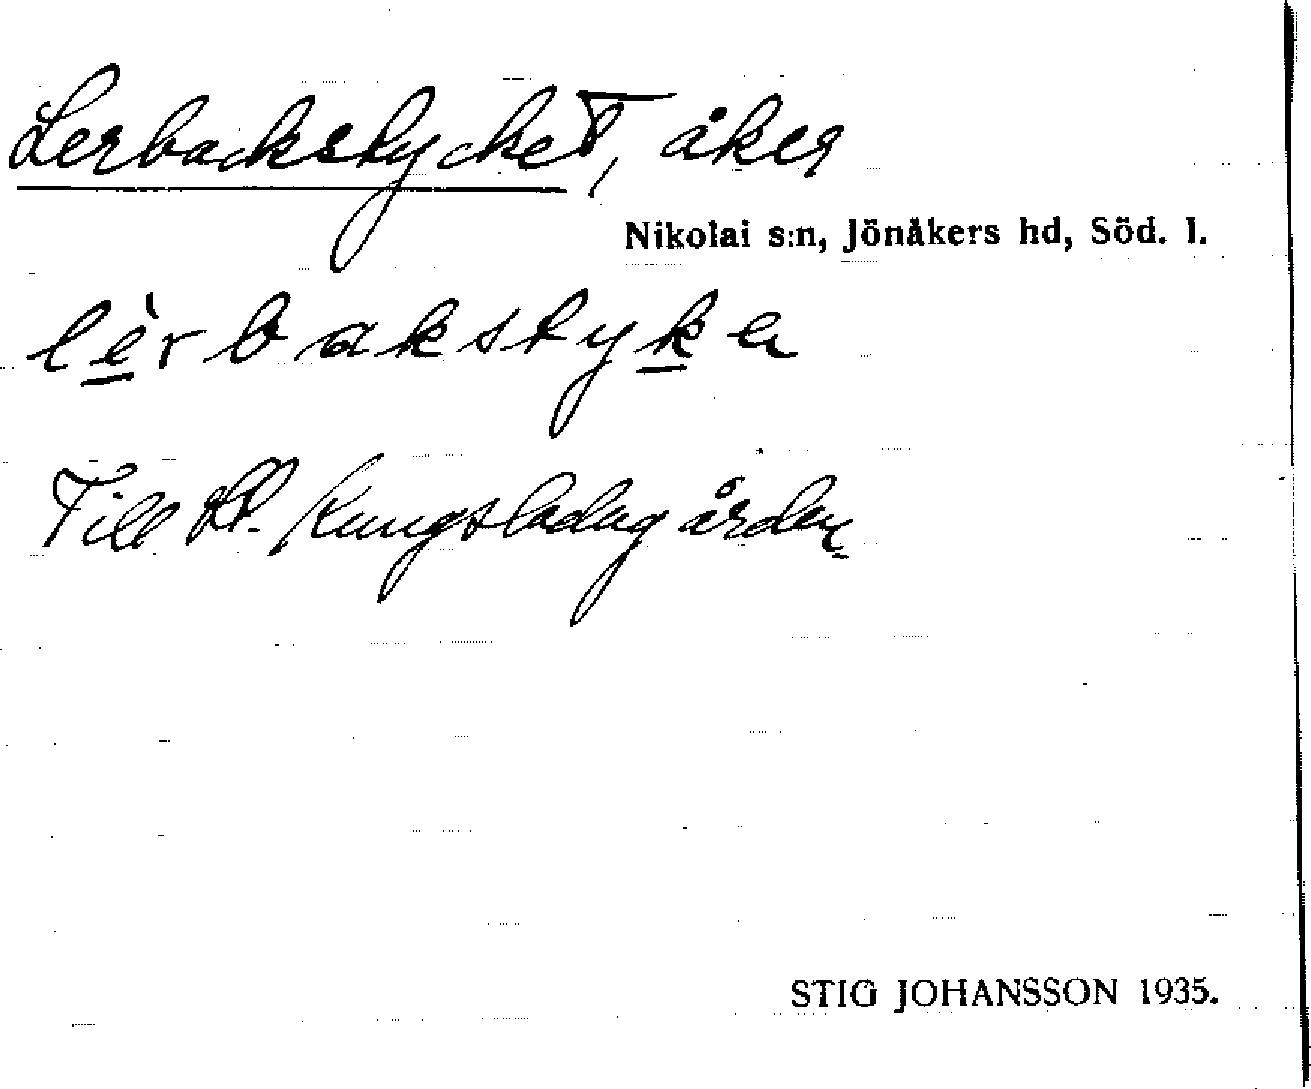 Lerbackstycket, åker
Nikolai s:n, Jönåkers hd, Söd. l.
lèrbakstykə
Till St. Kungsladugården
STIG JOHANSSON 1935.